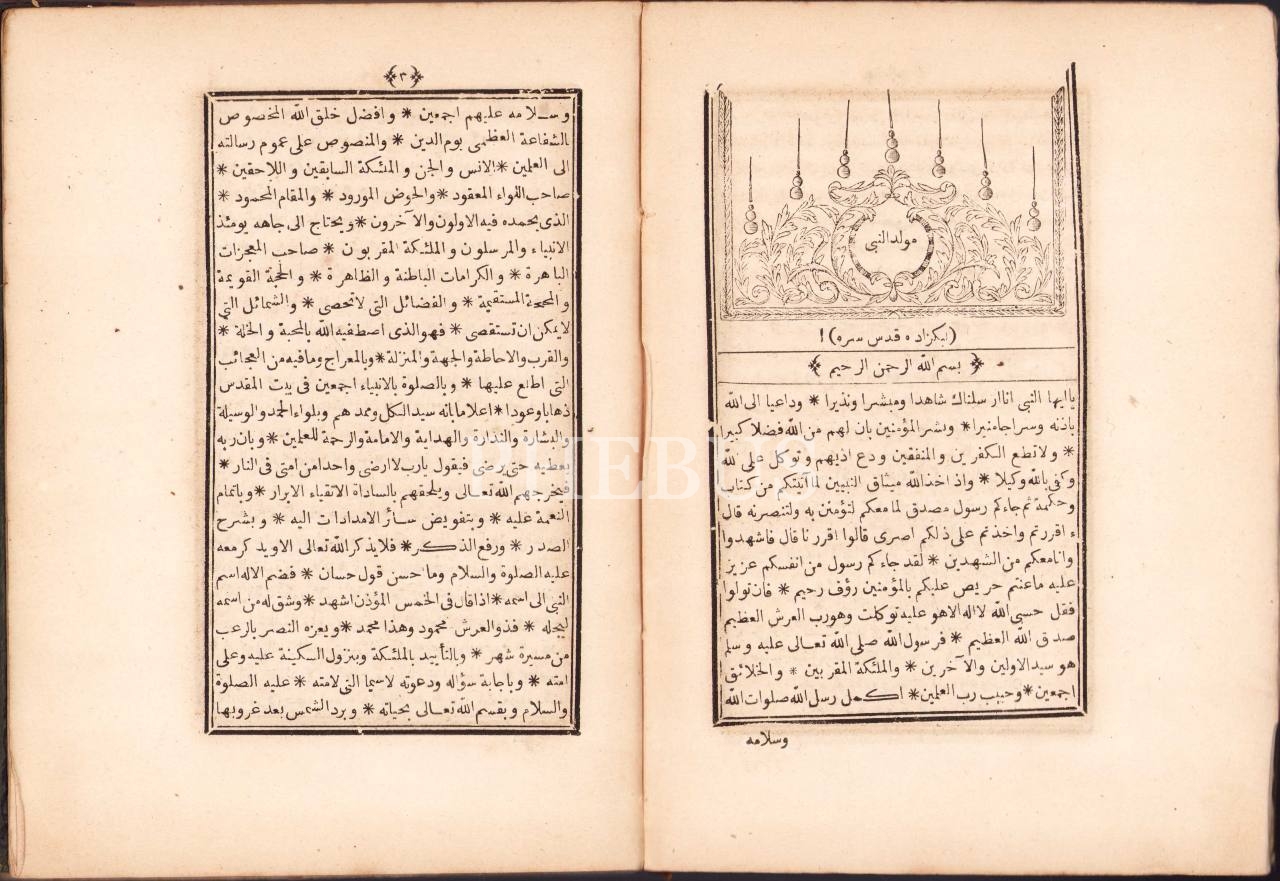 مولد النبى
بسم الله الرحمن الرحيم
ياايها النبى اناارسلناك شاهدا ومبشرا ونذيرا * وداعيا الى الله
باذنه وسراجا منيرا * وبشر المؤمنين بان لهم من الله فضلا كبيرا
* ولا تطع الكفرين والمنفقين ودع اذيهم وتوكل على لله
وكفى بالله وكيلا * واذ اخذ الله ميثاق النبيين لما آتيتكم من كتاب
وحكمة ثم جاءكم رسول مصدق لما معكم لتؤمنن به ولتنصرنه قال
ء اقررتم واخذتم على ذلكم اصرى قالوا اقررنا قال فاشهدوا
وانا معكم من الشهدين * لقد جاءكم رسول من انفسكم عزيز
عليه ماعنتم حريص عليكم بالمؤمنين رؤف رحيم * فان تولوا
فقل حسبى الله لا اله الا هو عليه توكلت وهو رب العرش العظيم
صدق الله العظيم * فرسول الله صلى الله تعالى عليه وسلم
هو سيد الاولين والآخرين * والملئكة المقربين * والخلائق
اجمعين * وحبيب رب العلمين * اكمل رسل الله صلوات الله
وسلامه
٣
وسلامه عليهم اجمعين * وافضل خلق الله المخصوص
بالشفاعة العظمى يوم الدين * والمنصوص على عموم رسالته
الى العلمين * الانس والجن والملئكة السابقين واللاحقين *
صاحب اللواء المعقود * والحوض المورود * والمقام المحمود *
الذى يحمده فيه الاولون والآخرون * ويحتاج الى جاهه يومئذ
الانبياء والمرسلون والملئكة المقربون * صاحب المعجزات
الباهرة * والكرامات الباطنة والظاهرة * والحجة القويمة
والمحجة المستقيمة * والفضائل التى لا تحصى * والشمائل التى
لايمكن ان تستقصى * فهو الذى اصطفيه الله بالمحبة والخلة *
والقرب والاحاطة والجهة والمنزلة * وبالمعراج ومافيه من العجائب
التى اطلع عليها * وبالصلوة بالانبياء اجمعين فى بيت المقدس
ذهابا وعودا * اعلاما بانه سيد الكل وممدهم وبلواء الحمد والوسيلة
والبشارة والنذارة والهداية والامامة والرحمة للعلمين * وبان ربه
يعطيه حتى يرضى فيقول يارب لا ارضى واحدا من امتى فى النار *
فيخرجهم الله تعالى ويلحقهم بالساداة الاتقياء الابرار * وباتمام
النعمة عليه * وبتفويض سائر الامدادات اليه * وبشرح
الصدر * ورفع الذكر * فلا يذكر الله تعالى الا ويذكر معه
عليه الصلوة والسلام وما حسن قول حسان * فضم الاله اسم
النبى الى اسمه * اذا قال فى الخمس المؤذن اشهد * وشق له من اسمه
ليجله * فذو العرش محمود وهذا محمد * وبعزه النصر بالرعب
من مسيرة شهر * وبالتأييد بالملئكة وبنزول السكينة عليه وعلى
امته * وباجابة سؤاله ودعوته لاسيما التى لامته * عليه الصلوة
والسلام وبقسم الله تعالى بحياته * وبرد الشمس بعد غروبها
PHEBUS